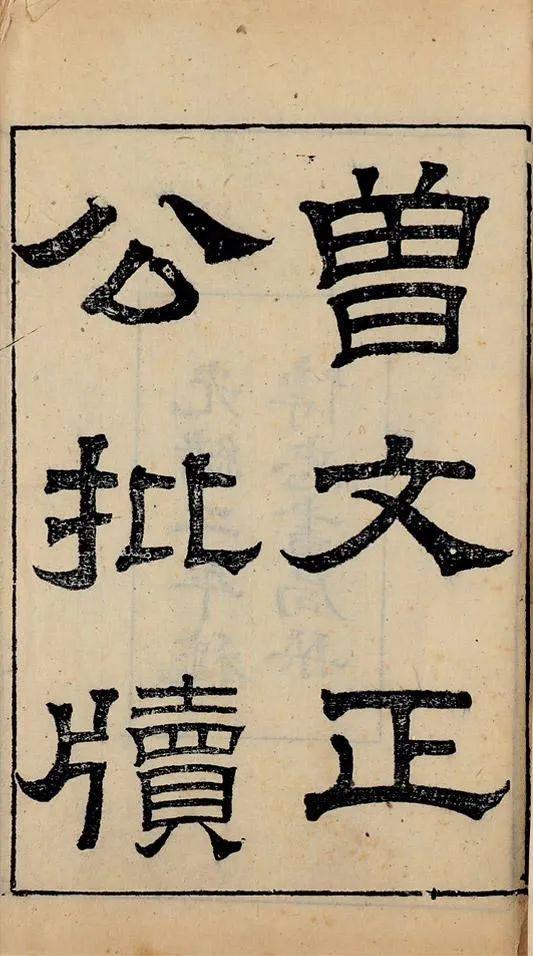 曾文正
公批牘